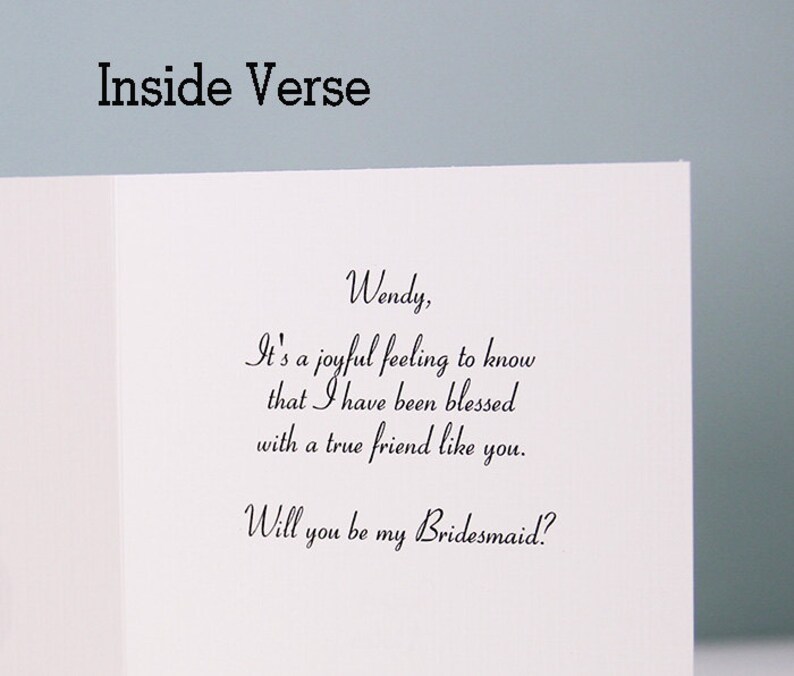 Inside Verse
Wendy,
It's a joyful feeling to know
that I have been blessed
with a true friend like you.
Will you be my Bridesmaid?